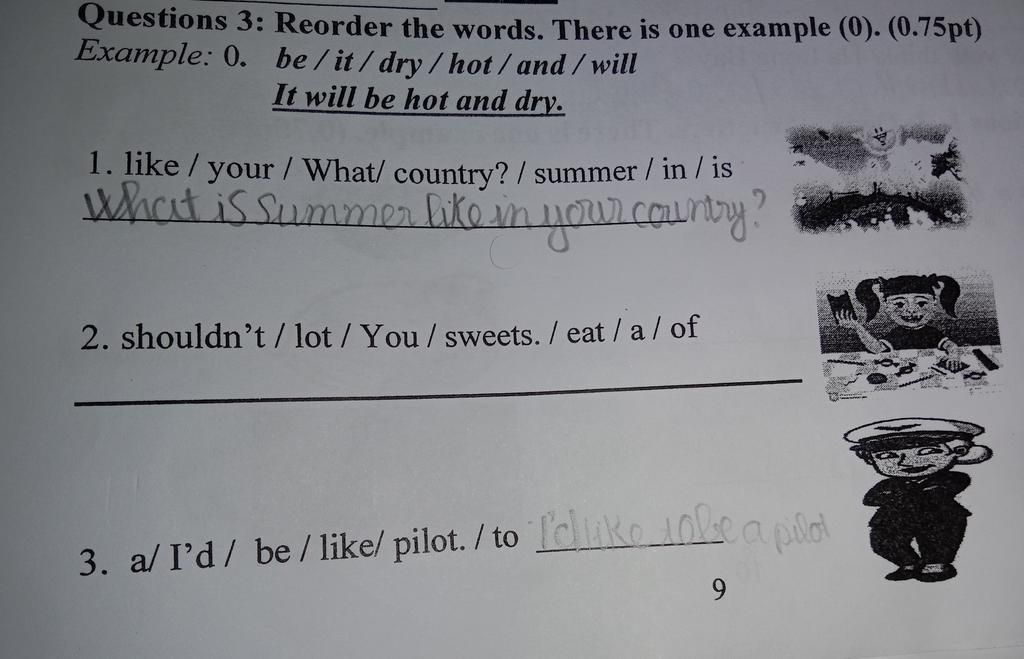 Questions 3: Reorder the words. There is one example (0). (0.75pt)
Example: 0. be / it / dry / hot / and / will
It will be hot and dry.
1. like / your / What/ country? / summer / in / is
What is summer like in your country?
2. shouldn't / lot / You / sweets. / eat / a / of
3. a/ I'd / be / like/ pilot. / to I'd like to be a pilot
9